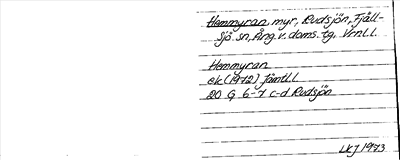 Hemmyran, myr, Rudsjön, Fjäll-
sjö sn, Ång. v. doms. tg, Vrnl. l.
Hemmyran
ek (1972) Jämtl. l.
20 G 6-7 c-d Rudsjön
LKJ 1973